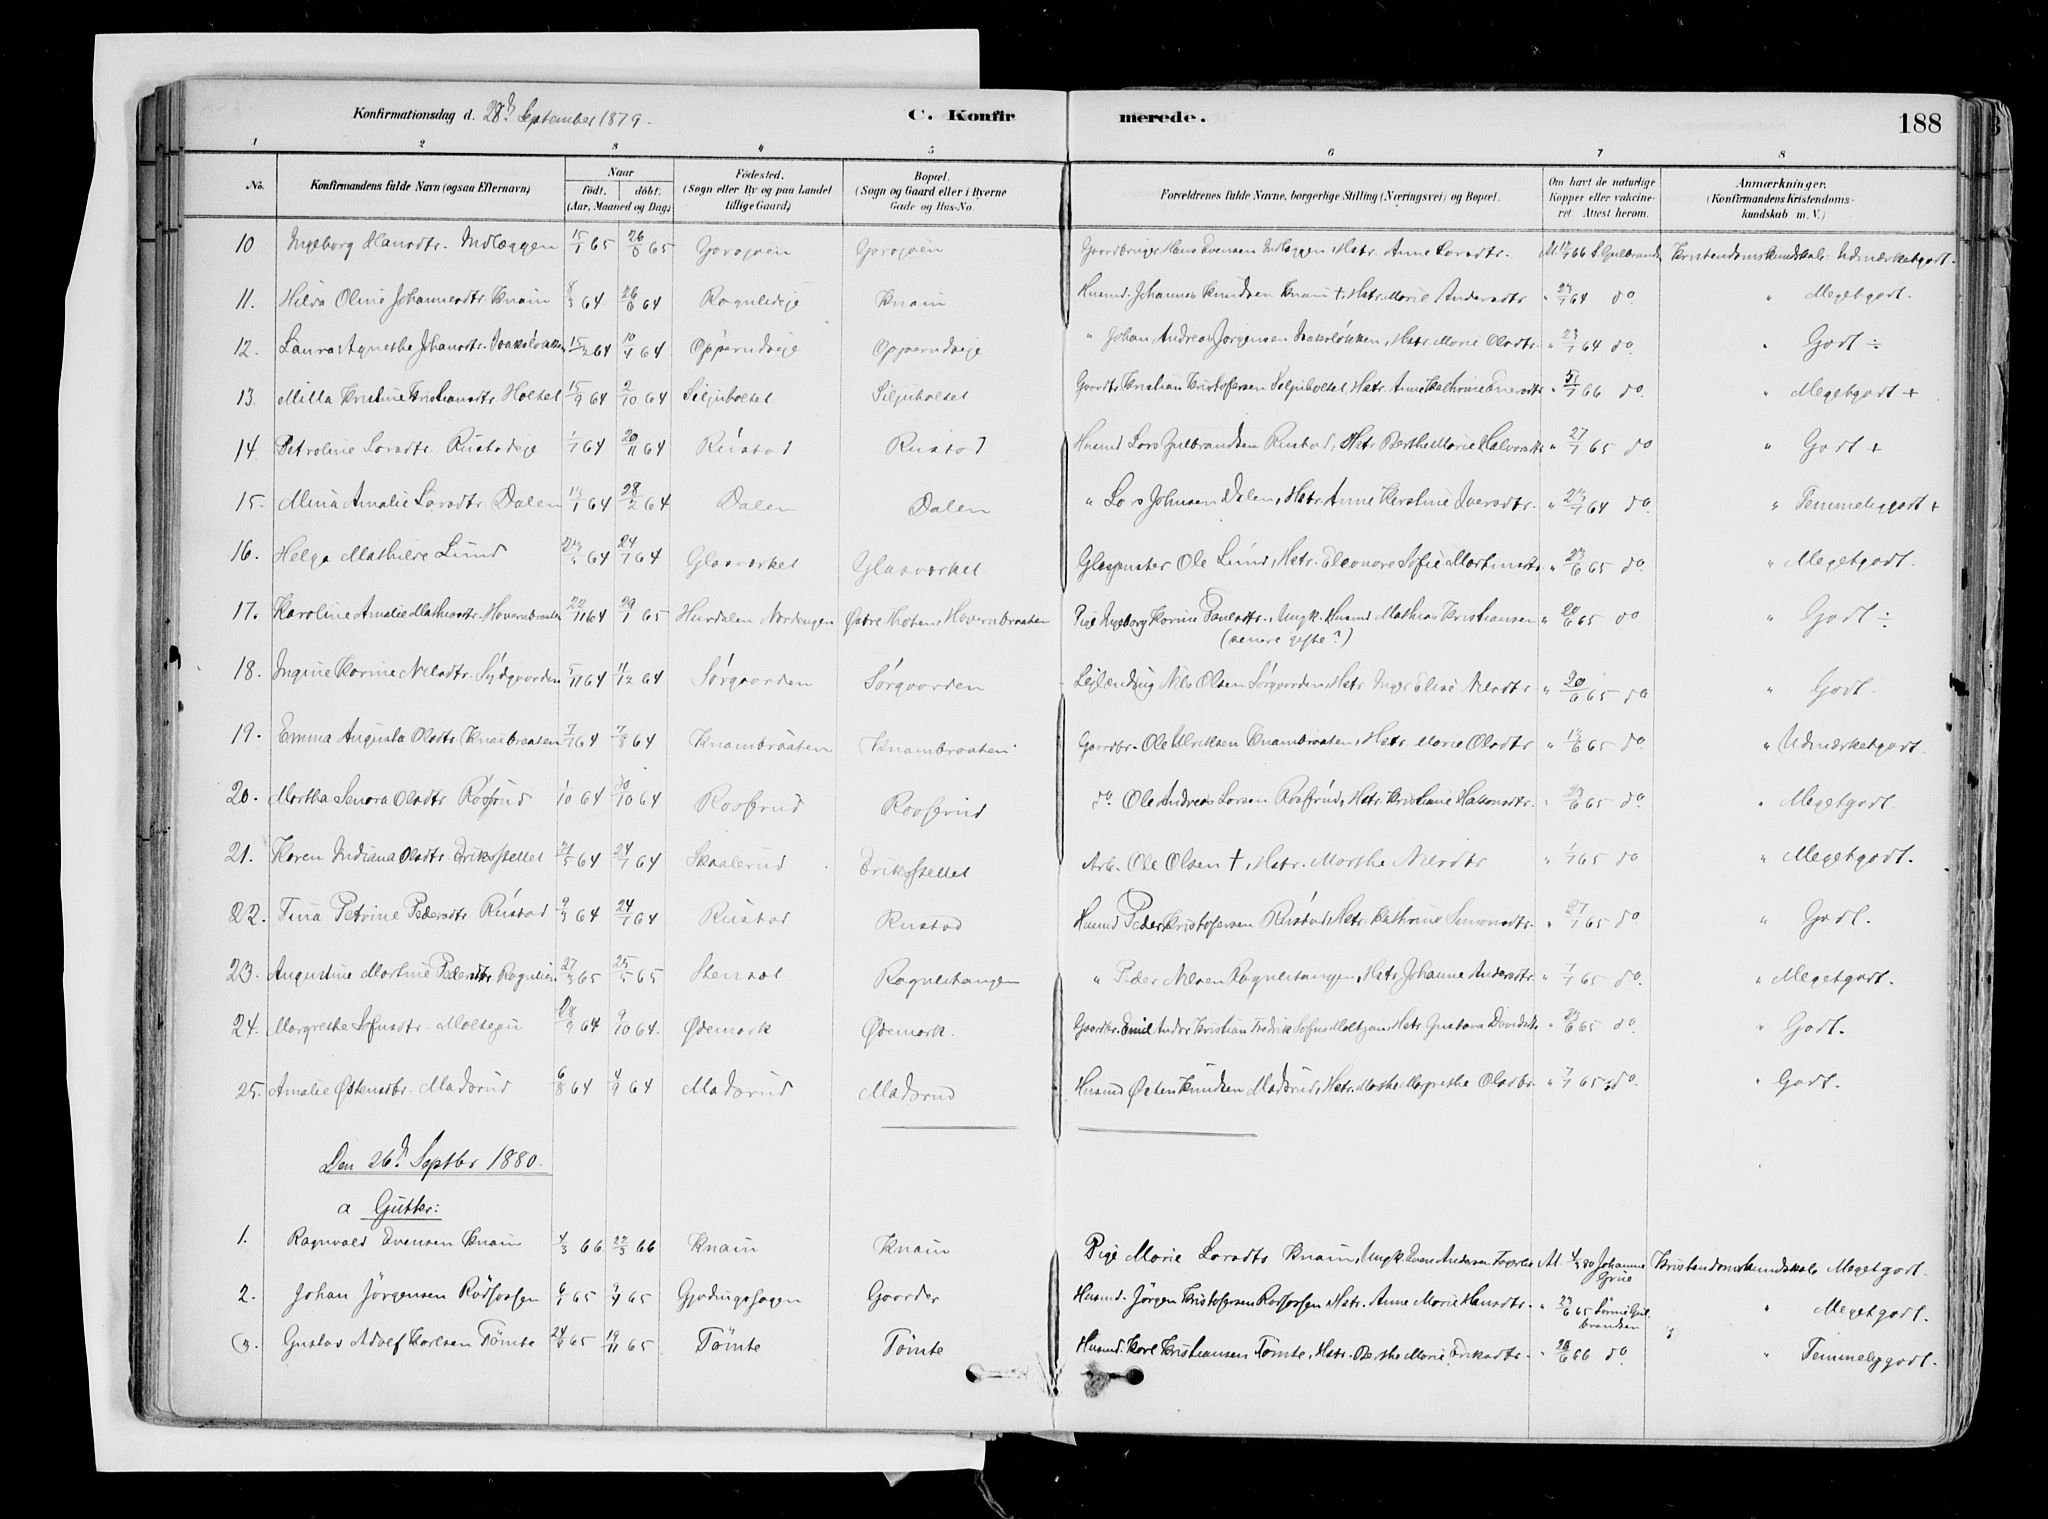 Konfirmationsdag d. 28d September 1879. C. Konfirmerede. 188
1 2 3 4 5 6 7 8
No. Konfirmandens fulde Navn (ogsaa Efternavn) Naar født. døbt. (Aar, Maaned og Dag) Fødested. (Sogn eller By og paa Landet tillige Gaard) Bopæl. (Sogn og Gaard eller i Byerne Gade og Hus-No. Forældrenes fulde Navne, borgerlige Stilling (Næringsvei) og Bopæl. Om havt de naturlige Kopper eller vakcineret. Attest herom. Anmærkninger. (Konfirmandens Kristendomskundskab m. V.)
10 Ingeborg Hansdtr. Indlæggen 15/1 65 26/3 65 Garsjøen Garsjøen Gaardbruger Hans Evensen Indlæggen, Hstr. Anne Larsdtr. Kristendomskundskab: Udmærketgodt.
11. Hilda Oline Johannesdtr. Knain 8/3 64 26/6 64 Knain Husmd. Johannes Knudsen Knain †, Hstr. Marie Andersdtr " 23/7 64 do " Megetgodt.
12. Laura Agnethe Johansdtr. 15/2 64 10/4 64 Opperudeje Opperudeje " Johan Andreas Jørgensen Hstr. Marie Olsdtr. " 23/7 64 do " Godt ÷
13. Milla Kristine Kristiansdtr Holtet 15/9 64 2/10 64 Siljuholtet Siljuholtet Gaardbr Kristian Kristofersen Siljuholtet, Hstr. Anne Kathrine " 66 do. " Megetgodt +
14. Petroline Larsdtr. Rustadeje 1/7 64 20/11 64 Rustad Rustad Husmd Lars Gulbrandsen Rustad, Hstr Berthe Marie Halvorsdtr " 27/7 65 do " Godt +
15. Mina Amalie Larsdtr Dalen 13/1 64 28/2 64 Dalen Dalen " Lars Johnsen Dalen, Hstr Anne Kerstine Iversdtr. " 23/7 64 do. " Temmeliggodt +
16. Helga Mathilde Lund 64 24/7 64 Glasværket Glasværket Glaspuster Ole Lund, Hstr. Eleonore Sofie Martinsdtr " 23/6 65 do. " Megetgodt.
17. Karoline Amalie Mathiasdtr. Hovernbraaten 22/11 64 29/1 65 Hurdalen Nordengen Østre Thoten, Hovernbraaten Pige Ingeborg Karine Paulsdtr., Ungk. Husmd Mathias Kristiansen " 20/6 65 do " Godt ÷
(senere gifte?)
18. Ingine Karine Nilsdtr. Sydgaarden 5/11 64 11/12 64 Sørgaarden Sørgaarden Lejlænding Nils Olsen Sørgaarden, Hstr Inger Elise Nilsdtr " 20/6 65 do " Godt.
19. Emma Augusta Olsdtr. Knaibraaten 7/7 64 7/8 64 Knambraaten Knambraaten Gaardbr. Ole Ulriksen Knambraaten, Hstr Marie Olsdtr " 13/6 65 do " Udmærketgodt.
20. Martha Olsdtr. Roosrud 1/10 64 64 Roosrud Roosrud do. Ole Andreas Larsen Roosrud, Hstr. Kristiane Hakonsdtr. " 65 do " Megetgodt.
21. Karen Indiana Olsdtr. Erikstellet 21/5 64 24/7 64 Skaalerud Erikstellet Arb. Ole Olsen †, Hstr. Marthe Nilsdtr " 1/7 65 do " Megetgodt.
22. Tina Petrine Pedersdtr Rustad 9/3 64 24/7 64 Rustad Rustad Husmd Peder Kristofersen Rustad, Hstr. Kathrine Simonsdtr. " 27/7 65 do " Godt.
23. Augustine Martine Pedersdtr Ragnlien 27/3 65 25/5 65 Stensol Ragnlistangen " Peder Nilsen Ragnlistangen, Hstr. Johanne Andersdtr. " 7/7 65 do. " Megetgodt.
24. Margrethe Sofusdtr. Moltzau 28/9 64 9/10 64 Ødemark Ødemark. Gaardbr. Emil Andor Kristian Fredrik Sofus Moltzau, Hstr Gustava Davidsdtr " 23/6 65 do. " Godt.
25. Amalie Østensdtr. Madsrud 6/8 64 4/9 64 Madsrud Madsrud Husmd Østen Knudsen Madsrud, Hstr. Marthe Margrethe Olsdtr. " 7/7 65 do. " Godt.
Den 26d Septbr 1880.
a Gutter:
1. Ragnvald Evensen Knain 4/3 66 22/3 66 Knain Knain Pige Marie Larsdtr Knain, Ungk. Even Andersen M. 4/3 80 Johanne Grue Kristendomskundskab Megetgodt.
2. Johan Jørgensen Rødfossen 6/1 65 9/4 65 Gjødingshagen Gaarder Husmd. Jørgen Kristofersen Rødfossen Hstr. Anne Marie Hansdtr. " 23/6 65 Sørine Gulbrandsen " Megetgodt.
3. Gustav Adolf Karlsen Tømte 24/9 65 19/11 65 Tømte Tømte Husmd. Karl Kristiansen Tømte, Hstr. Berthe Marie Eriksdtr. " 26/6 66 do. " Temmeliggodt.